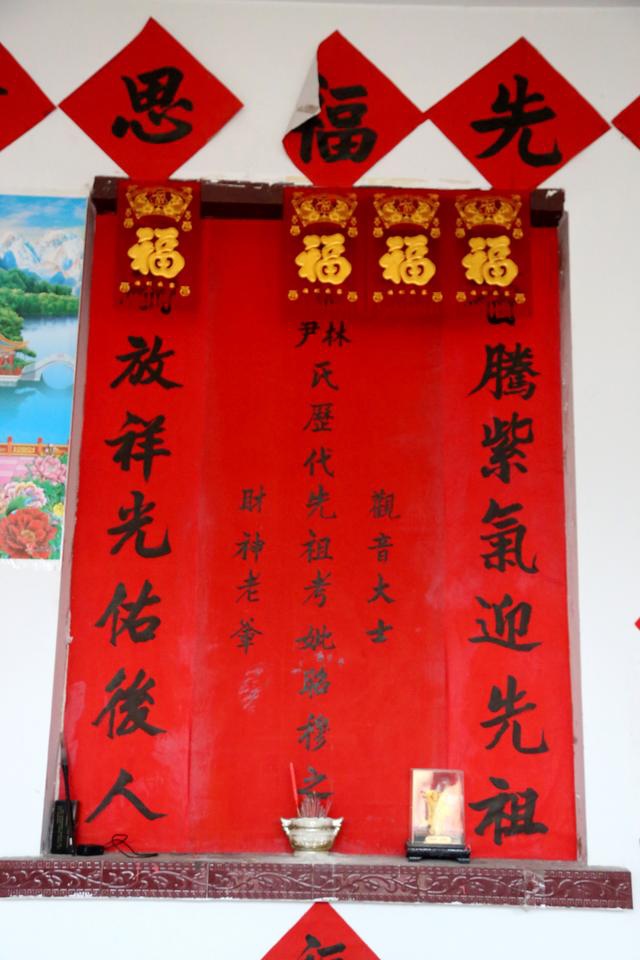 先
福
思
福
福
福
福
騰紫氣迎先祖
觀音大士
林尹
氏歷代先祖考妣昭穆之
財神老爺
放祥光佑後人